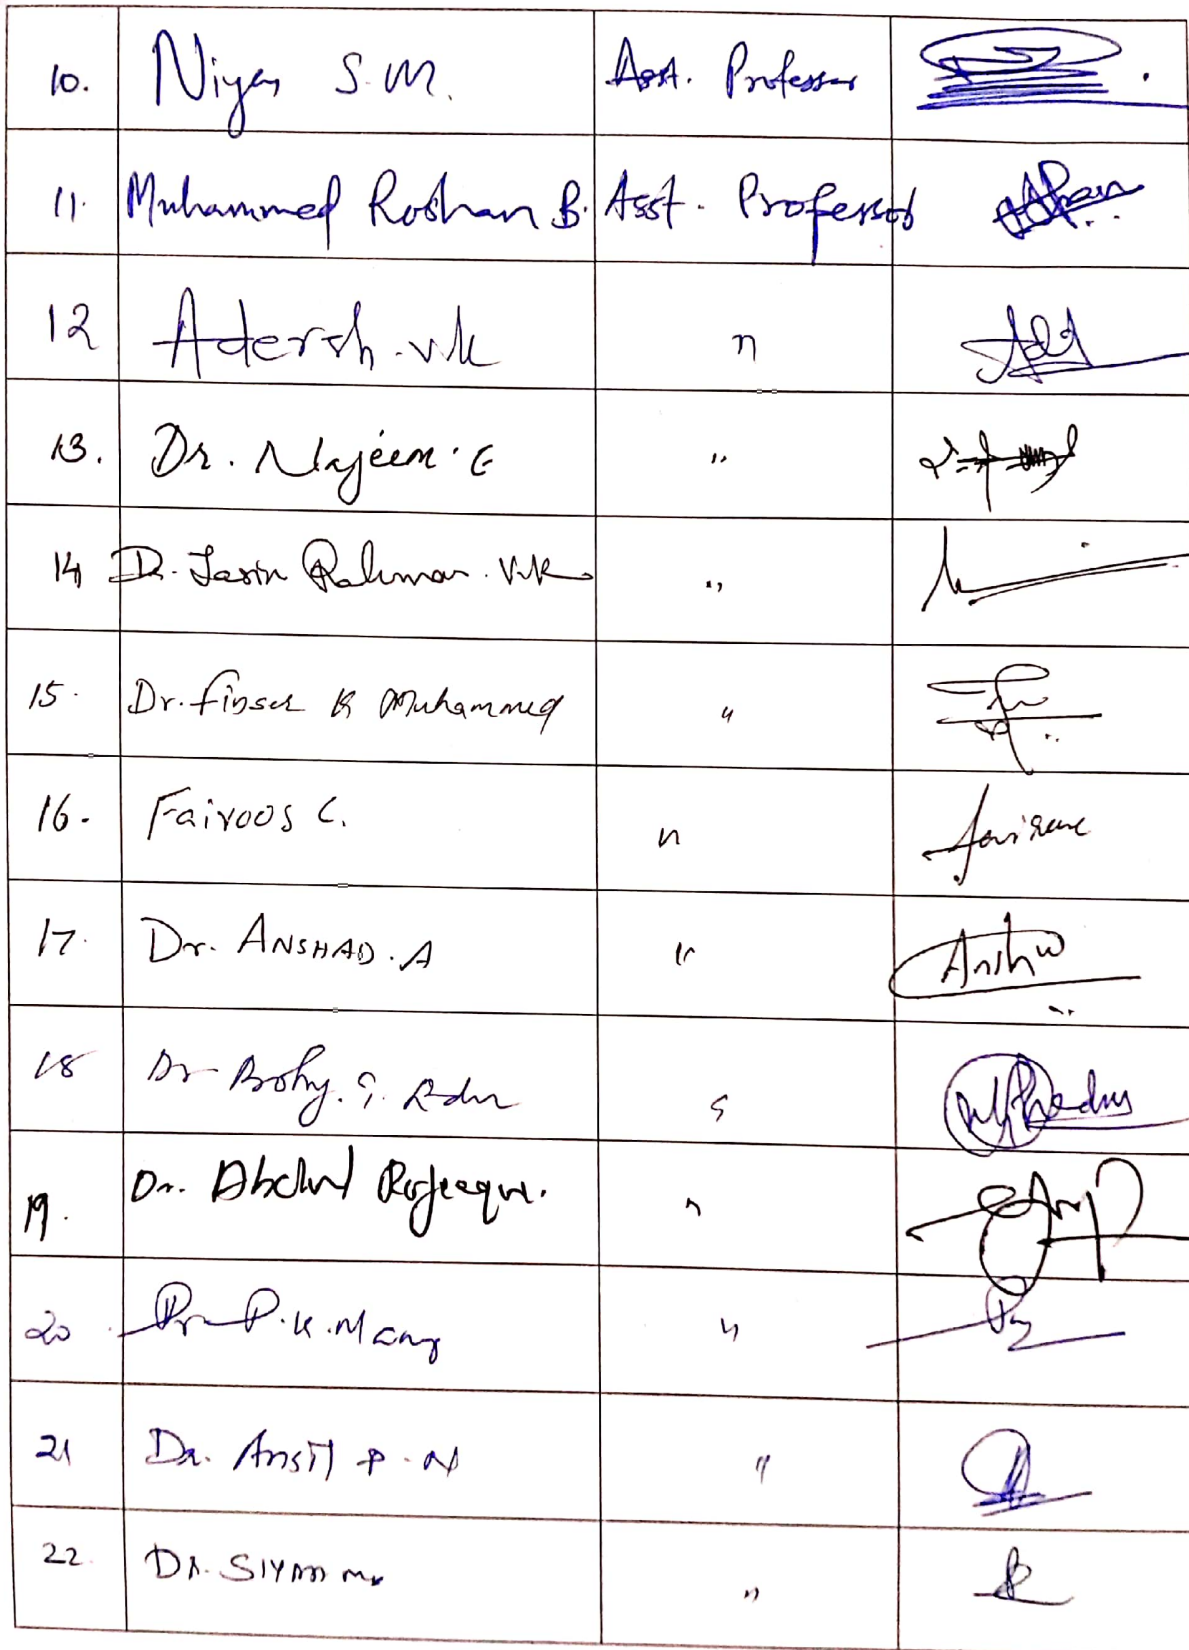 10. Niyas S.M. Asst. Professor
11. Muhammed Roshan B. Asst. Professor
12 Adersh.vk "
13. Dr. Najeem.E "
14 Dr. Jasin Rahman. V.K "
15. Dr. K Muhammed "
16. Fairoos C. "
17. Dr. ANSHAD.A "
18 Dr "
19. Dr. Abdul Rafeeque. "
20 Dr P.K. "
21 Dr. Ansil P.N "
22. Dr. "